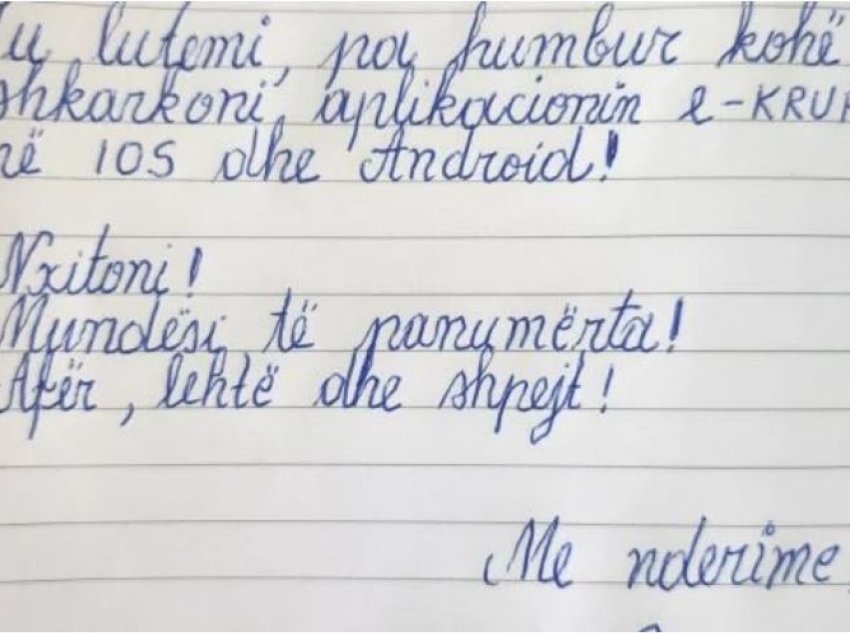 u lutemi, pa humbur kohë
shkarkoni aplikacionin e-KRUH
në IOS dhe Android!
Nxitoni!
Mundësi të panumërta!
Afër, lehtë dhe shpejt!
Me nderime,